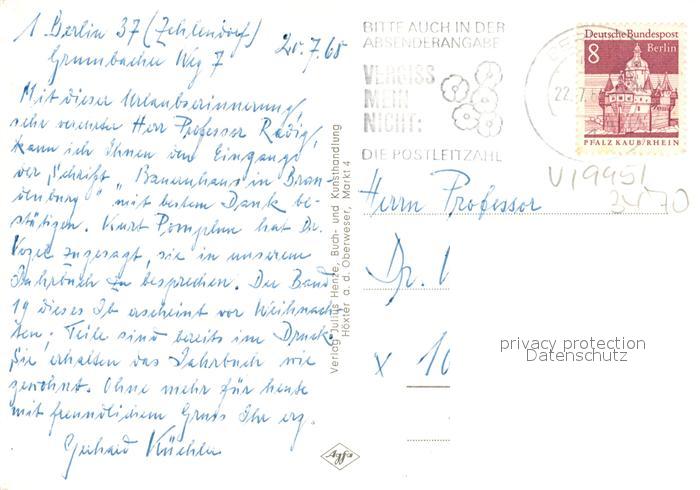 1 Berlin 37 (Zehlendorf)
Grumbacher Weg 7 20.7.68
Mit dieser Urlaubserinnerung,
sehr verehrter Herr Professor
kann ich Ihnen den Eingang
der Schrift "Bauernhaus in Bran-
denburg" mit bestem Dank be-
stätigen. Kurt Pomplun hat Dr.
Vogel zugesagt, sie in unserem
Jahrbuch zu besprechen. Der Band
19 dieses Jb erscheint vor Weihnach
ten; Teile sind bereits im Druck.
Sie erhalten das Jahrbuch wie
gewohnt. Ohne mehr für heute
mit freundlichem Gruss Ihr erg.
Gerhard Küchler
Verlag Julius Henze, Buch- und Kunsthandlung
Höxter a. d. Oberweser, Markt 4
Agfa
BITTE AUCH IN DER
ABSENDERANGABE
VERGISS
MEIN
NICHT:
DIE POSTLEITZAHL
22.7.6
Deutsche Bundespost
8 Berlin
PFALZ KAUB/RHEIN
V19951
3470
Herrn Professor
Dr.
x 10
privacy protection
Datenschutz